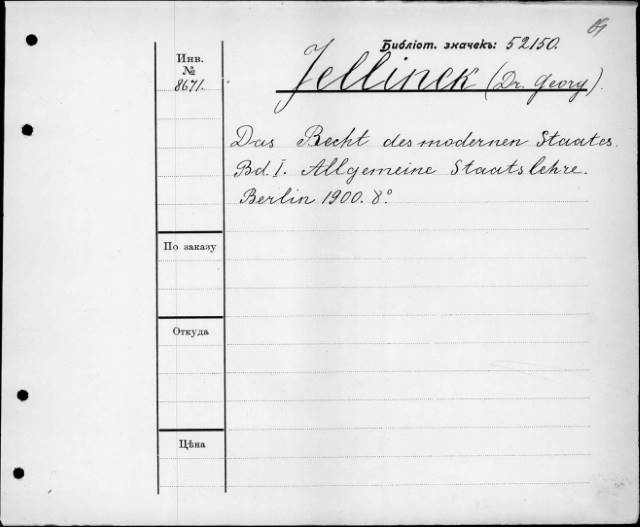 Библіот. значекъ: 52150.
Инв.
№
8671.
Jellinek (Dr. Georg).
Das Recht des modernen Staates.
Bd. I. Allgemeine Staatslehre.
Berlin 1900. 8°
По заказу
Откуда
Цѣна